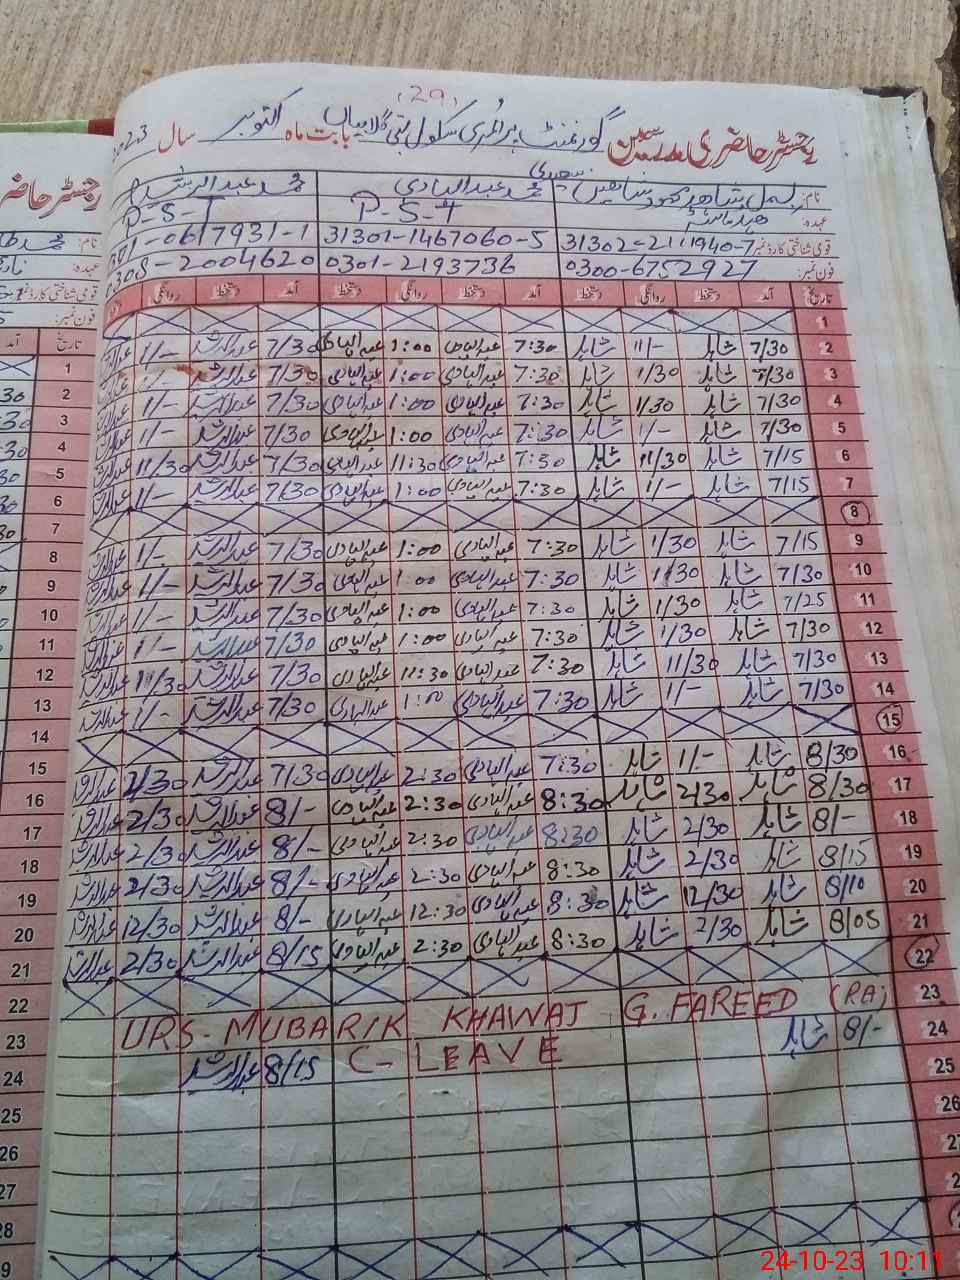 (29)
رجسٹر حاضری مدرسین گورنمنٹ پرائمری سکول بستی گلا میاں بابت ماہ اکتوبر سال 2023
نام: محمد عبدالہادی محمد عبدالرشید
عہدہ: ہیڈ ماسٹر P-S-T P-S-T
قومی شناختی کارڈ نمبر 31302-2111940-7 31301-1467060-5 0617931-1
فون نمبر: 0300-6752927 0301-2193736 0305-2004620
تاریخ آمد دستخط روانگی دستخط آمد دستخط روانگی دستخط آمد دستخط روانگی
1
2 7/30 شاہد 11/- شاہد 7:30 عبدالہادی 1:00 عبدالہادی 7/30 عبدالرشید 1/- عبدالرشید
3 7/30 شاہد 1/30 شاہد 7:30 عبدالہادی 1:00 عبدالہادی 7/30 عبدالرشید 1/- عبدالرشید
4 7/30 شاہد 1/30 شاہد 7:30 عبدالہادی 1:00 عبدالہادی 7/30 عبدالرشید 1/- عبدالرشید
5 7/30 شاہد 1/- شاہد 7:30 عبدالہادی 1:00 عبدالہادی 7/30 عبدالرشید 1/- عبدالرشید
6 7/15 شاہد 11/30 شاہد 7:30 عبدالہادی 11:30 عبدالہادی 7/30 عبدالرشید 11/30 عبدالرشید
7 7/15 شاہد 1/- شاہد 7:30 عبدالہادی 1:00 عبدالہادی 7/30 عبدالرشید 1/- عبدالرشید
8
9 7/15 شاہد 1/30 شاہد 7:30 عبدالہادی 1:00 عبدالہادی 7/30 عبدالرشید 1/- عبدالرشید
10 7/30 شاہد 1/30 شاہد 7:30 عبدالہادی 1:00 عبدالہادی 7/30 عبدالرشید 1/- عبدالرشید
11 7/25 شاہد 1/30 شاہد 7:30 عبدالہادی 1:00 عبدالہادی 7/30 عبدالرشید 1/- عبدالرشید
12 7/30 شاہد 1/30 شاہد 7:30 عبدالہادی 1:00 عبدالہادی 7/30 عبدالرشید 1/- عبدالرشید
13 7/30 شاہد 11/30 شاہد 7:30 عبدالہادی 11:30 عبدالہادی 7/30 عبدالرشید 11/30 عبدالرشید
14 7/30 شاہد 1/- شاہد 7:30 عبدالہادی 1:00 عبدالہادی 7/30 عبدالرشید 1/- عبدالرشید
15
16 8/30 شاہد 1/- شاہد 7:30 عبدالہادی 2:30 عبدالہادی 7/30 عبدالرشید 2/30 عبدالرشید
17 8/30 شاہد 2/30 شاہد 8:30 عبدالہادی 2:30 عبدالہادی 8/- عبدالرشید 2/30 عبدالرشید
18 8/- شاہد 2/30 شاہد 8:30 عبدالہادی 2:30 عبدالہادی 8/- عبدالرشید 2/30 عبدالرشید
19 8/15 شاہد 2/30 شاہد 8:30 عبدالہادی 2:30 عبدالہادی 8/- عبدالرشید 2/30 عبدالرشید
20 8/10 شاہد 12/30 شاہد 8:30 عبدالہادی 12:30 عبدالہادی 8/- عبدالرشید 12/30 عبدالرشید
21 8/05 شاہد 2/30 شاہد 8:30 عبدالہادی 2:30 عبدالہادی 8/15 عبدالرشید 2/30 عبدالرشید
22
23 URS-MUBARIK KHAWAJ G. FAREED (RA)
24 8/- شاہد C-LEAVE 8/15 عبدالرشید
25
26
27
رجسٹر حاضر
نام:
عہدہ:
قومی شناختی کارڈ نمبر
فون نمبر:
تاریخ آمد
1
2
3
4
5
6
7
8
9
10
11
12
13
14
15
16
17
18
19
20
21
22
23
24
25
26
27
28
24-10-23 10:11